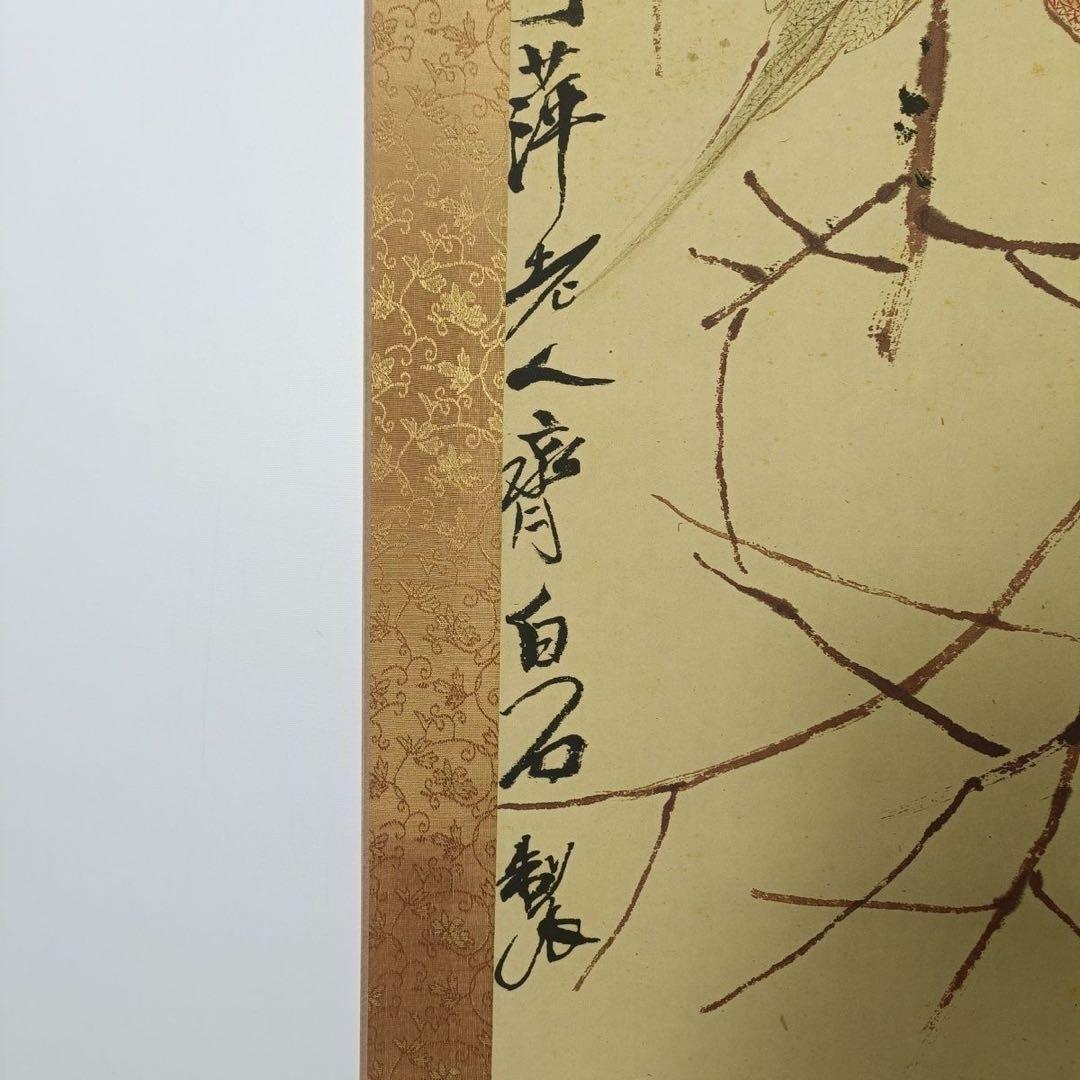 萍老人齊白石製